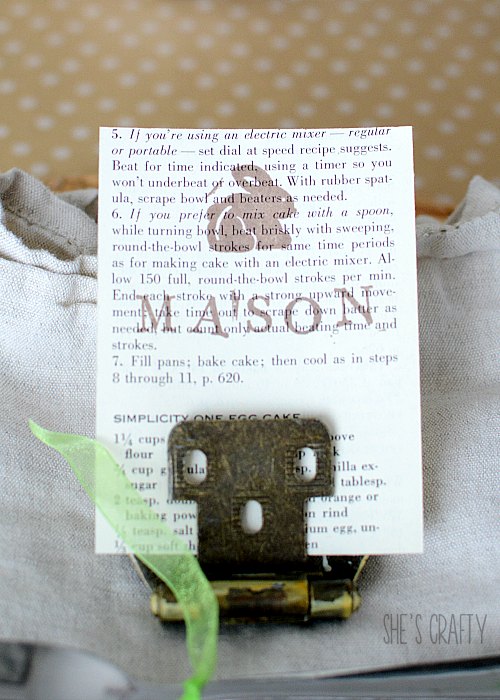 5. If you're using an electric mixer — regular
or portable — set dial at speed recipe suggests.
Beat for time indicated, using a timer so you
won't underbeat or overbeat. With rubber spat-
ula, scrape bowl and beaters as needed.
6. If you prefer to mix cake with a spoon,
while turning bowl, beat briskly with sweeping,
round-the-bowl strokes for same time periods
as for making cake with an electric mixer. Al-
low 150 full, round-the-bowl strokes per min.
End each stroke with a strong upward move-
ment; take time out to scrape down batter as
needed, but count only actual beating time and
strokes.
7. Fill pans; bake cake; then cool as in steps
8 through 11, p. 620.
&
MAISON
SIMPLICITY ONE EGG CAKE
1¼ cups
flour
cup
sugar tablesp.
2 teasp. orange or
baking rind
teasp. salt egg, un-
cup soft
SHE'S CRAFTY